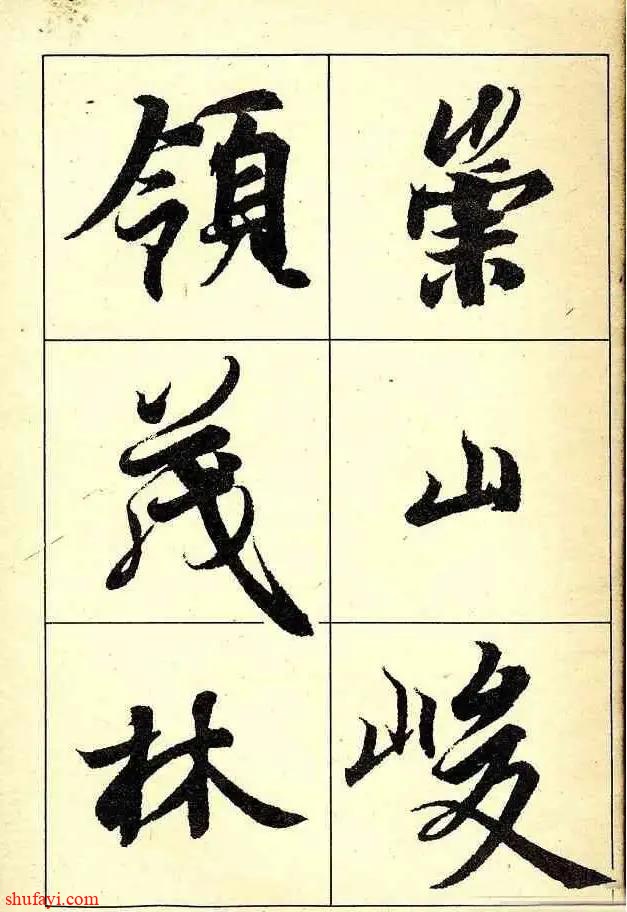 崇山峻
領茂林
shufayi.com